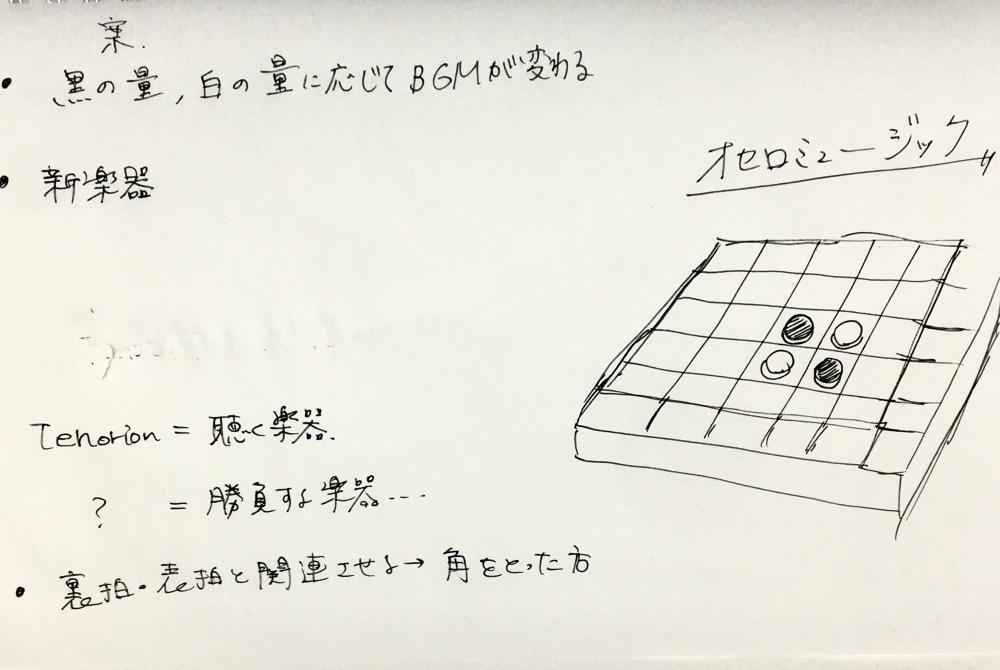 案.
・黒の量,白の量に応じてBGMが変わる
オセロミュージック
・新楽器
Tenorion = 聴く楽器.
? = 勝負する楽器...
・裏拍・表拍と関連させる→角をとった方